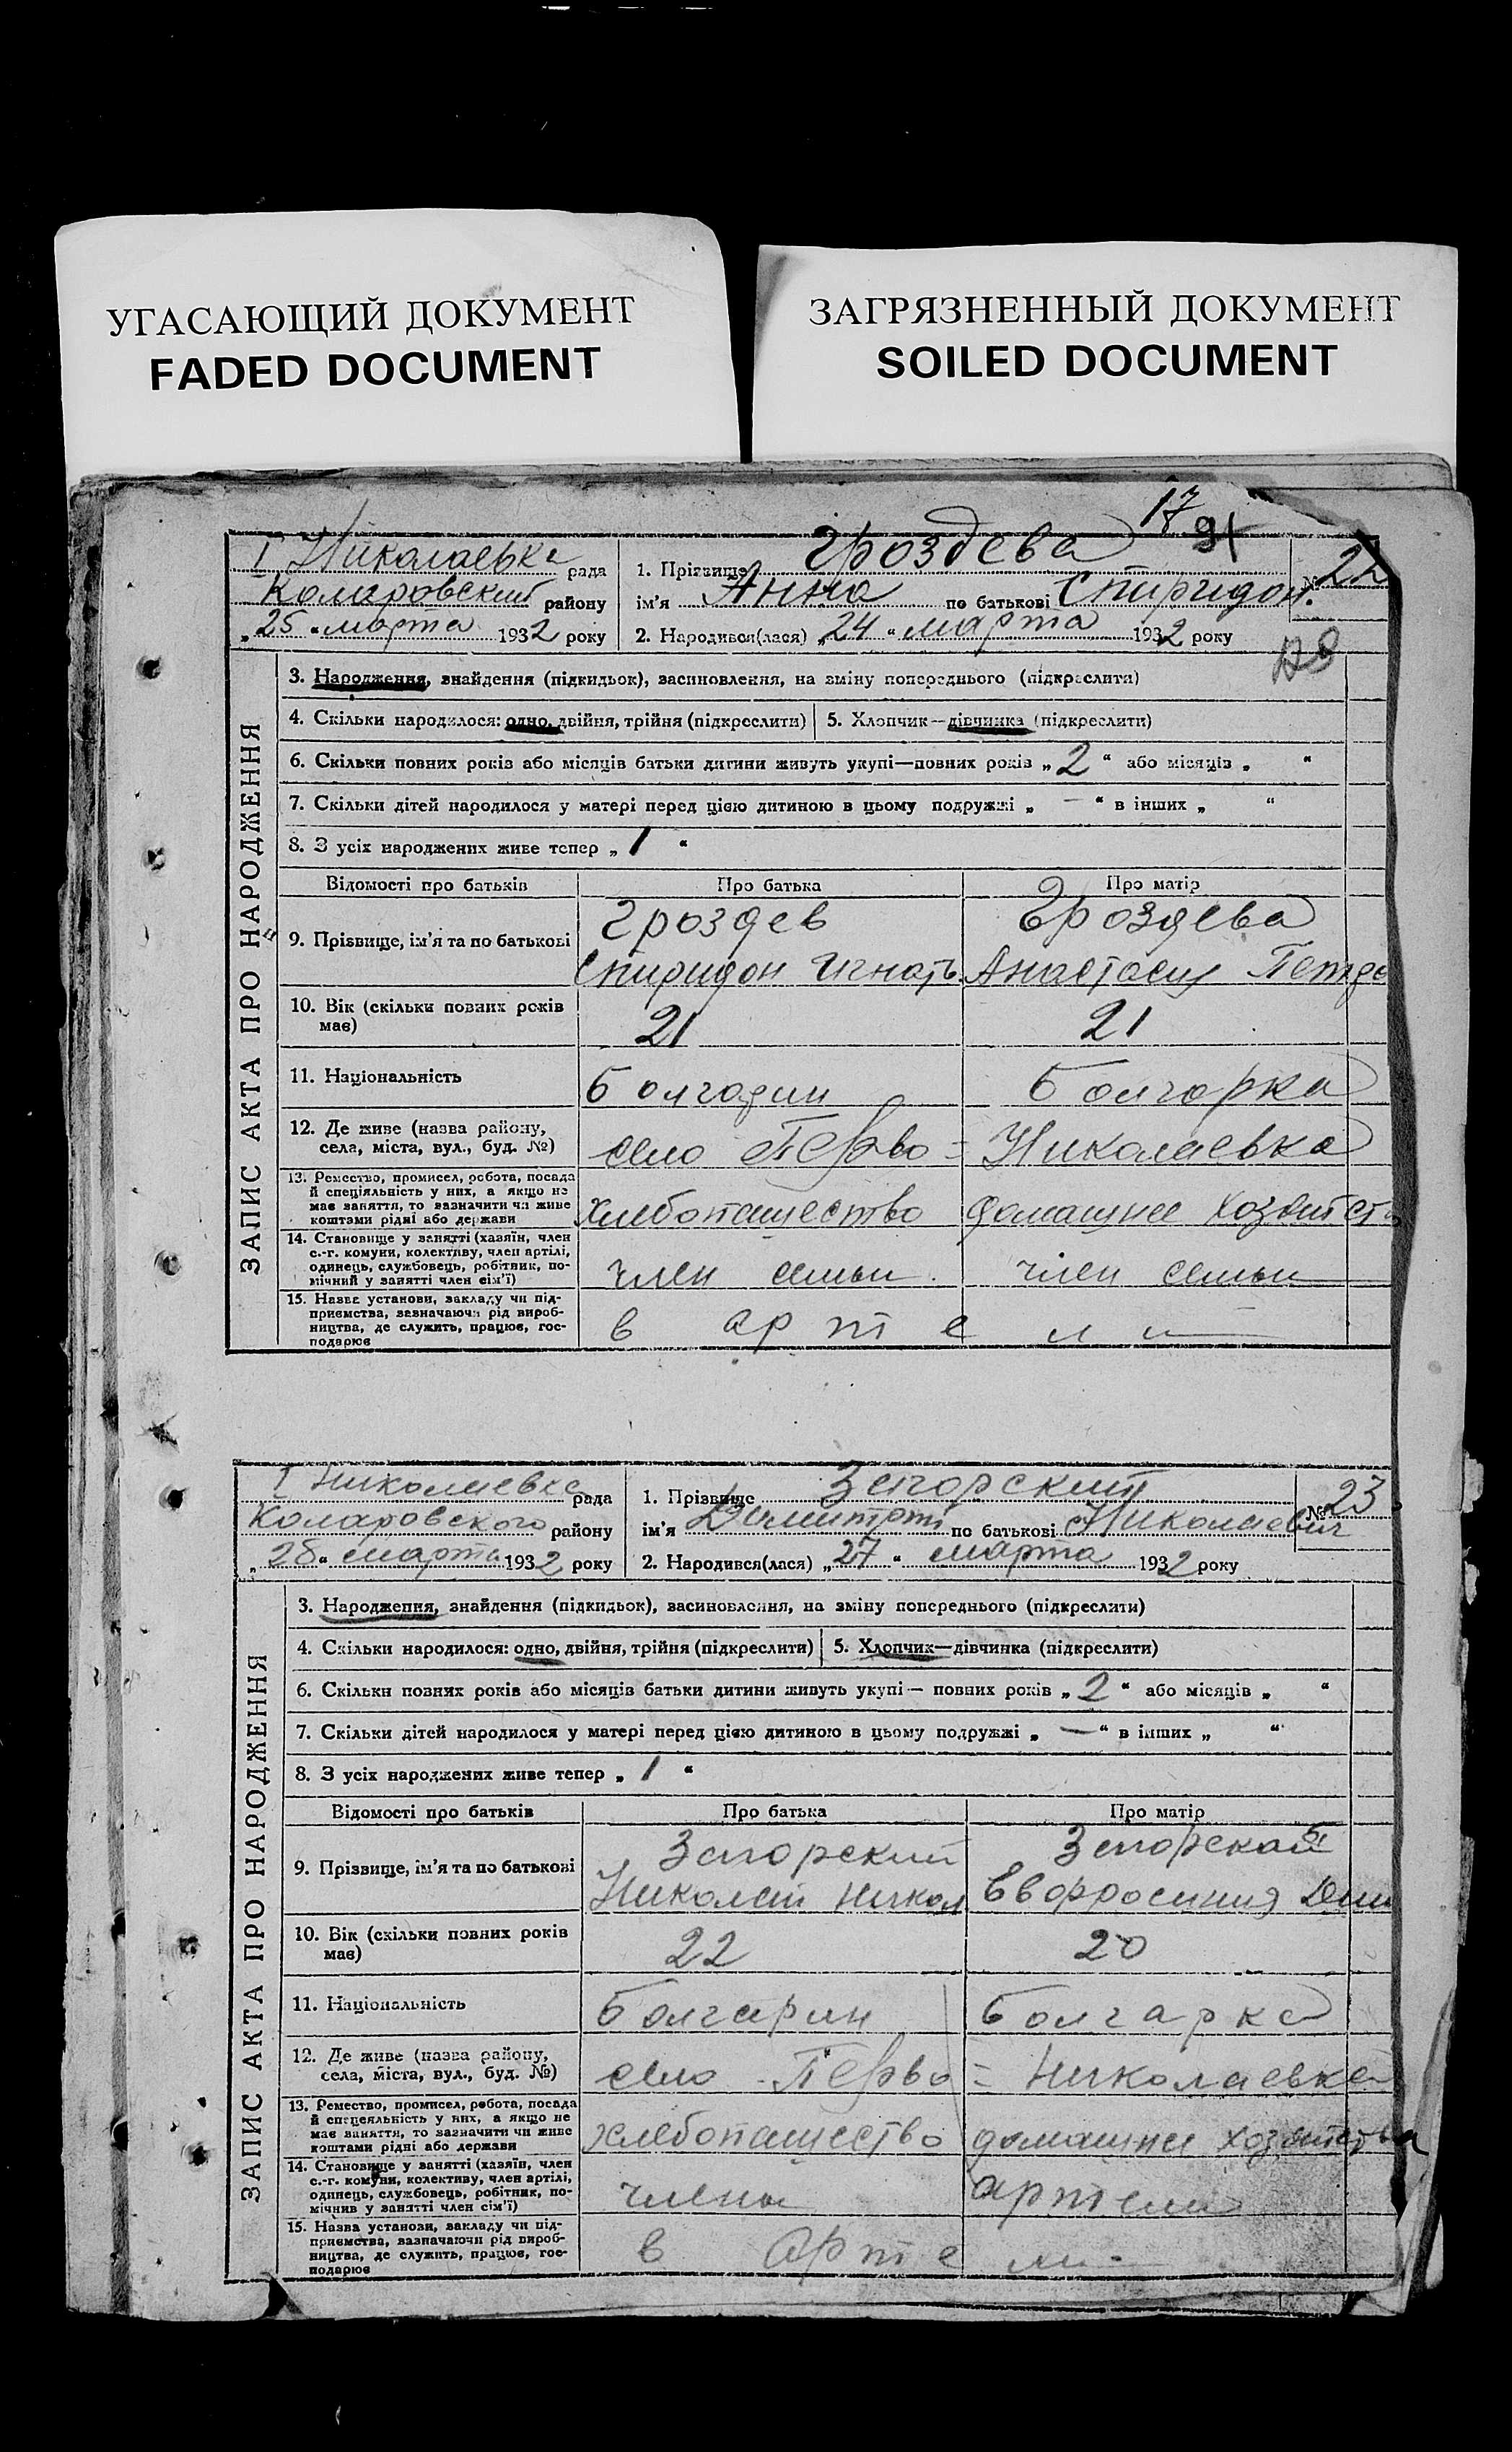 УГАСАЮЩИЙ ДОКУМЕНТ
FADED DOCUMENT
ЗАГРЯЗНЕННЫЙ ДОКУМЕНТ
SOILED DOCUMENT
17
91
I Николаевка рада
Коларовский району
„25“ марта 1932 року
1. Прізвище Гроздева
ім'я Анна по батькові Спиридон.
2. Народився(лася) „24“ марта 1932 року
№ 22
ЗАПИС АКТА ПРО НАРОДЖЕННЯ
3. Народження, знайдення (підкидьок), засиновлення, на зміну попереднього (підкреслити)
4. Скільки народилося: одно, двійня, трійня (підкреслити) 5. Хлопчик—дівчинка (підкреслити)
6. Скільки повних років або місяців батьки дитини живуть укупі—повних років „2“ або місяців „ “
7. Скільки дітей народилося у матері перед цією дитиною в цьому подружжі „—“ в інших „ “
8. З усіх народжених живе тепер „1“
Відомості про батьків Про батька Про матір
9. Прізвище, ім'я та по батькові Гроздев Гроздева
Спиридон Игнать. Анастасия Петро
10. Вік (скільки повних років має) 21 21
11. Національність Болгарин Болгарка
12. Де живе (назва району, села, міста, вул., буд. №) село Перво = Николаевка
13. Ремество, промисел, робота, посада й спеціяльність у них, а якщо не має заняття, то зазначити чи живе коштами рідні або держави хлебопашество домашнее хозяйство
14. Становище у занятті (хазяїн, член с.-г. комуни, колективу, член артілі, одинець, службовець, робітник, помічний у занятті член сім'ї) член семьи член семьи
15. Назва установи, закладу чи підприємства, зазначаючи рід виробництва, де служить, працює, господарює в артели
I Николаевка рада
Коларовского району
„28“ марта 1932 року
1. Прізвище Загорский
ім'я Димитрий по батькові Николаевич
2. Народився(лася) „27“ марта 1932 року
№ 23
ЗАПИС АКТА ПРО НАРОДЖЕННЯ
3. Народження, знайдення (підкидьок), засиновлення, на зміну попереднього (підкреслити)
4. Скільки народилося: одно, двійня, трійня (підкреслити) 5. Хлопчик—дівчинка (підкреслити)
6. Скільки повних років або місяців батьки дитини живуть укупі — повних років „2“ або місяців „ “
7. Скільки дітей народилося у матері перед цією дитиною в цьому подружжі „—“ в інших „ “
8. З усіх народжених живе тепер „1“
Відомості про батьків Про батька Про матір
9. Прізвище, ім'я та по батькові Загорский Загорская
Николай Никол. Евфросиния Дим
10. Вік (скільки повних років має) 22 20
11. Національність Болгарин Болгарка
12. Де живе (назва району, села, міста, вул., буд. №) село Перво = Николаевка
13. Ремество, промисел, робота, посада й спецеяльність у них, а якщо не має заняття, то зазначити чи живе коштами рідні або держави хлебопашество домашнее хозяйства
14. Становище у занятті (хазяїн, член с.-г. комуни, колективу, член артілі, одинець, службовець, робітник, помічнив у занятті член сім'ї) члены артели
15. Назва установи, закладу чи підприємства, зазначаючи рід виробництва, де служить, працює, господарює в артели.